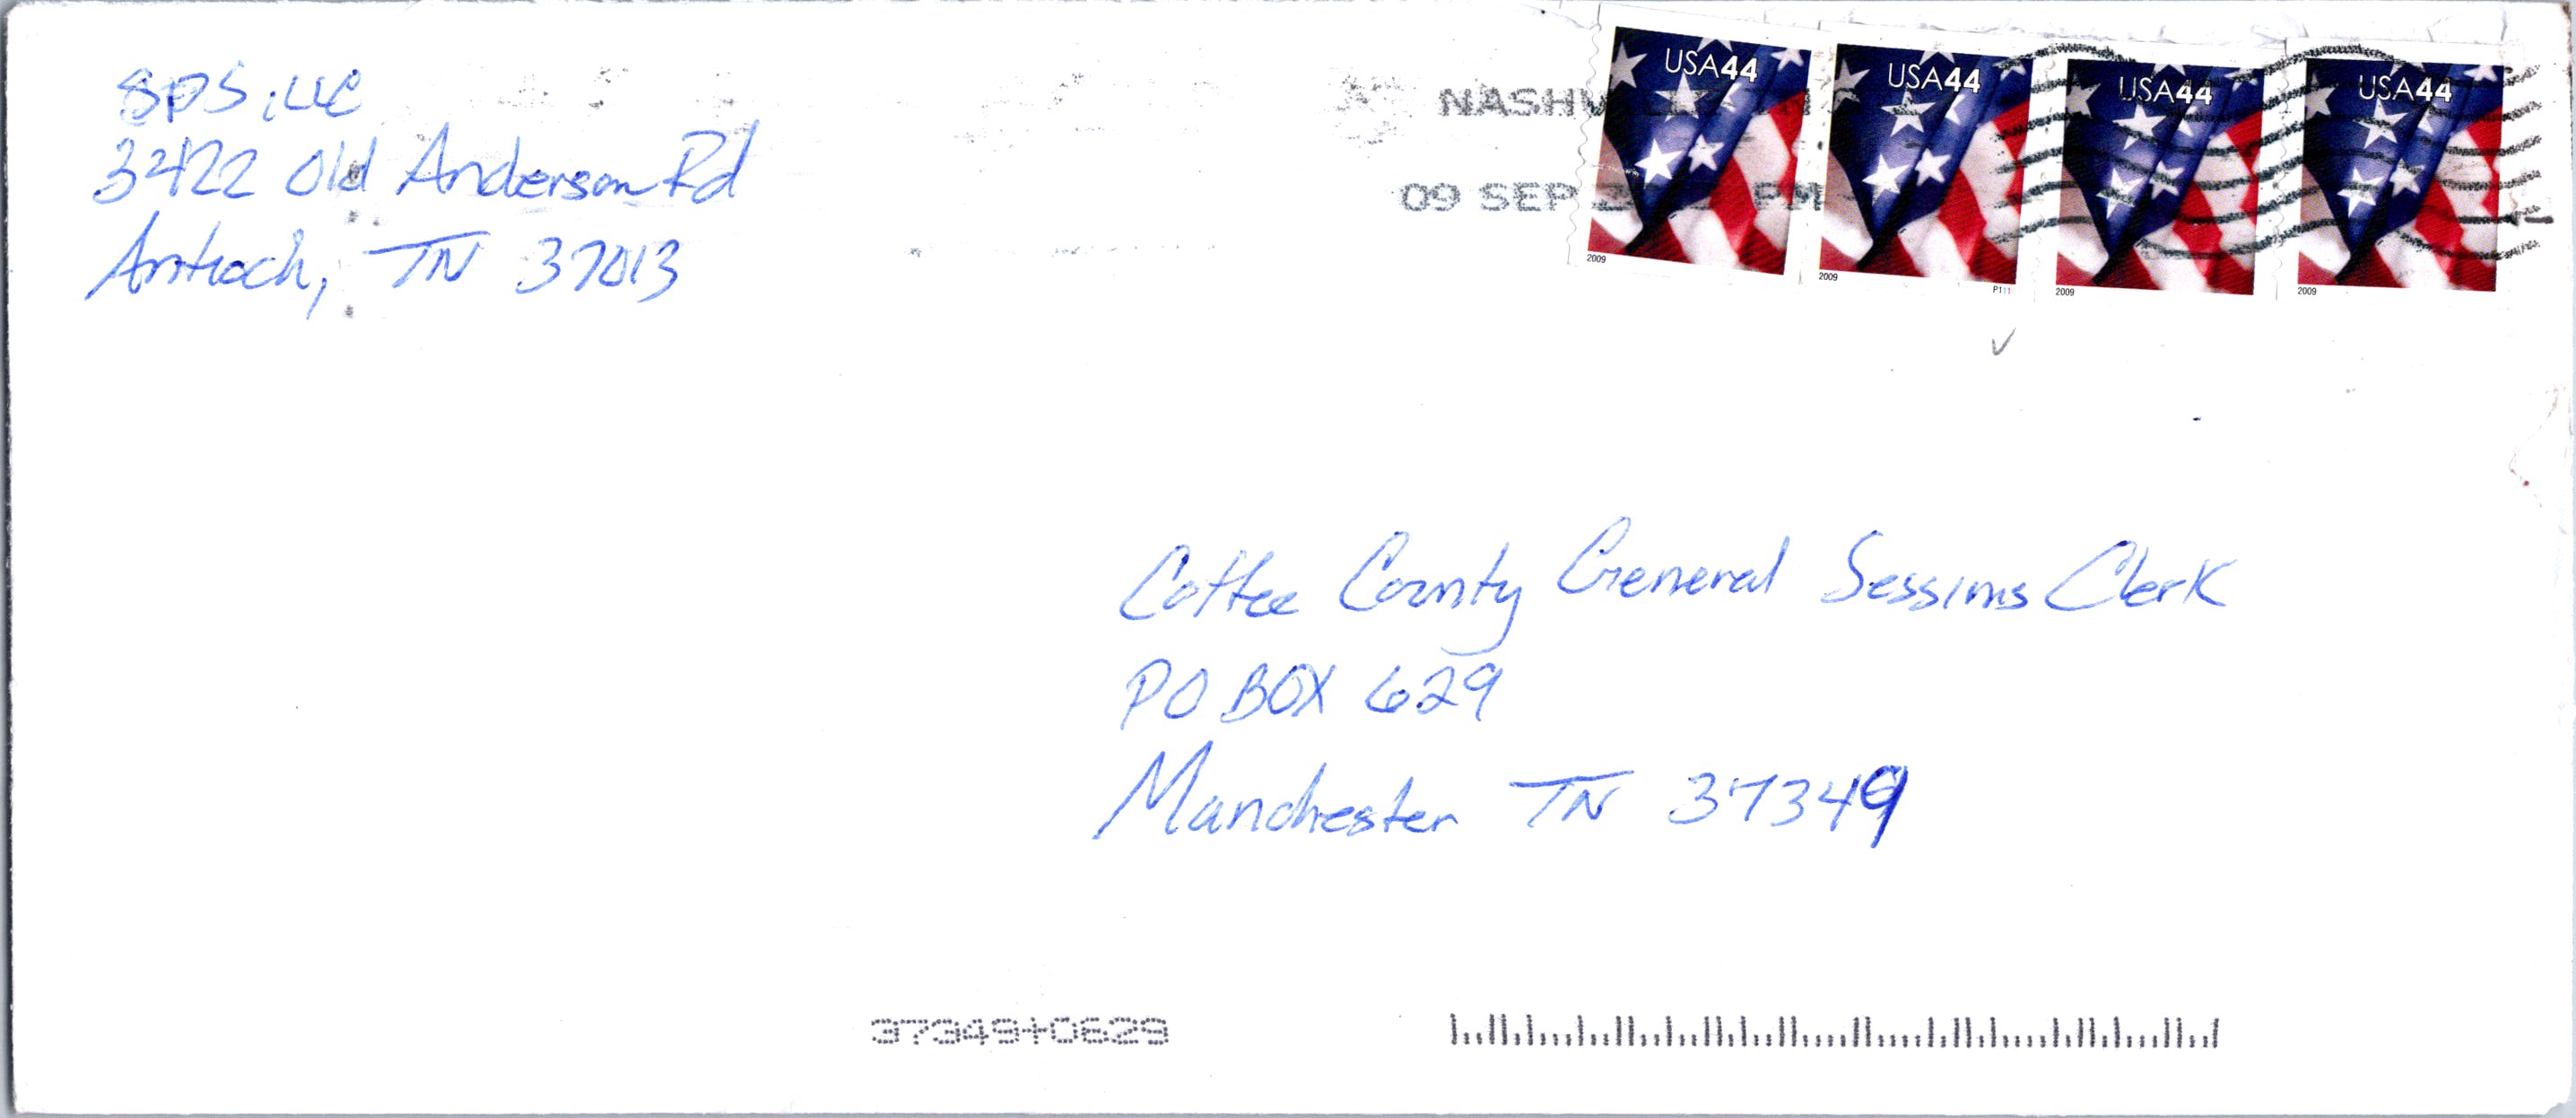 SPS, LLC
3422 Old Anderson Rd
Antioch, TN 37013
NASHVILLE TN
09 SEP PM
USA44
USA44
USA44
USA44
2009
2009
P111
2009
2009
Coffee County General Sessions Clerk
PO BOX 629
Manchester TN 37349
37349+0629